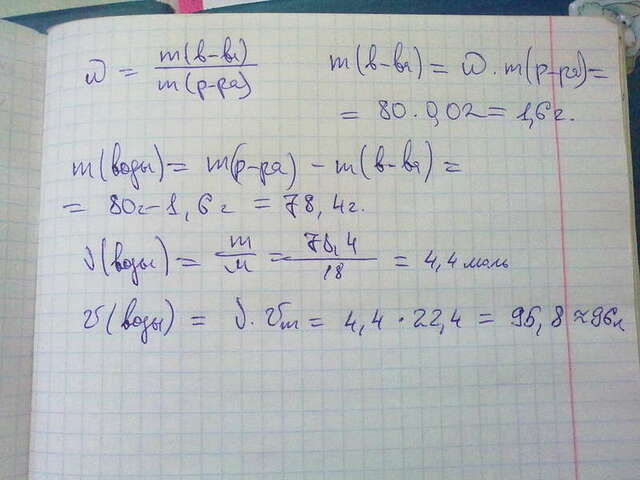 ω = m(в-ва) / m(р-ра)   m(в-ва) = ω · m(р-ра) =
= 80 · 0,02 = 1,6 г.
m(воды) = m(р-ра) - m(в-ва) =
= 80г - 1,6 г = 78,4г.
ν(воды) = m / M = 78,4 / 18 = 4,4 моль
V(воды) = ν · Vm = 4,4 · 22,4 = 95,8 ≈ 96л